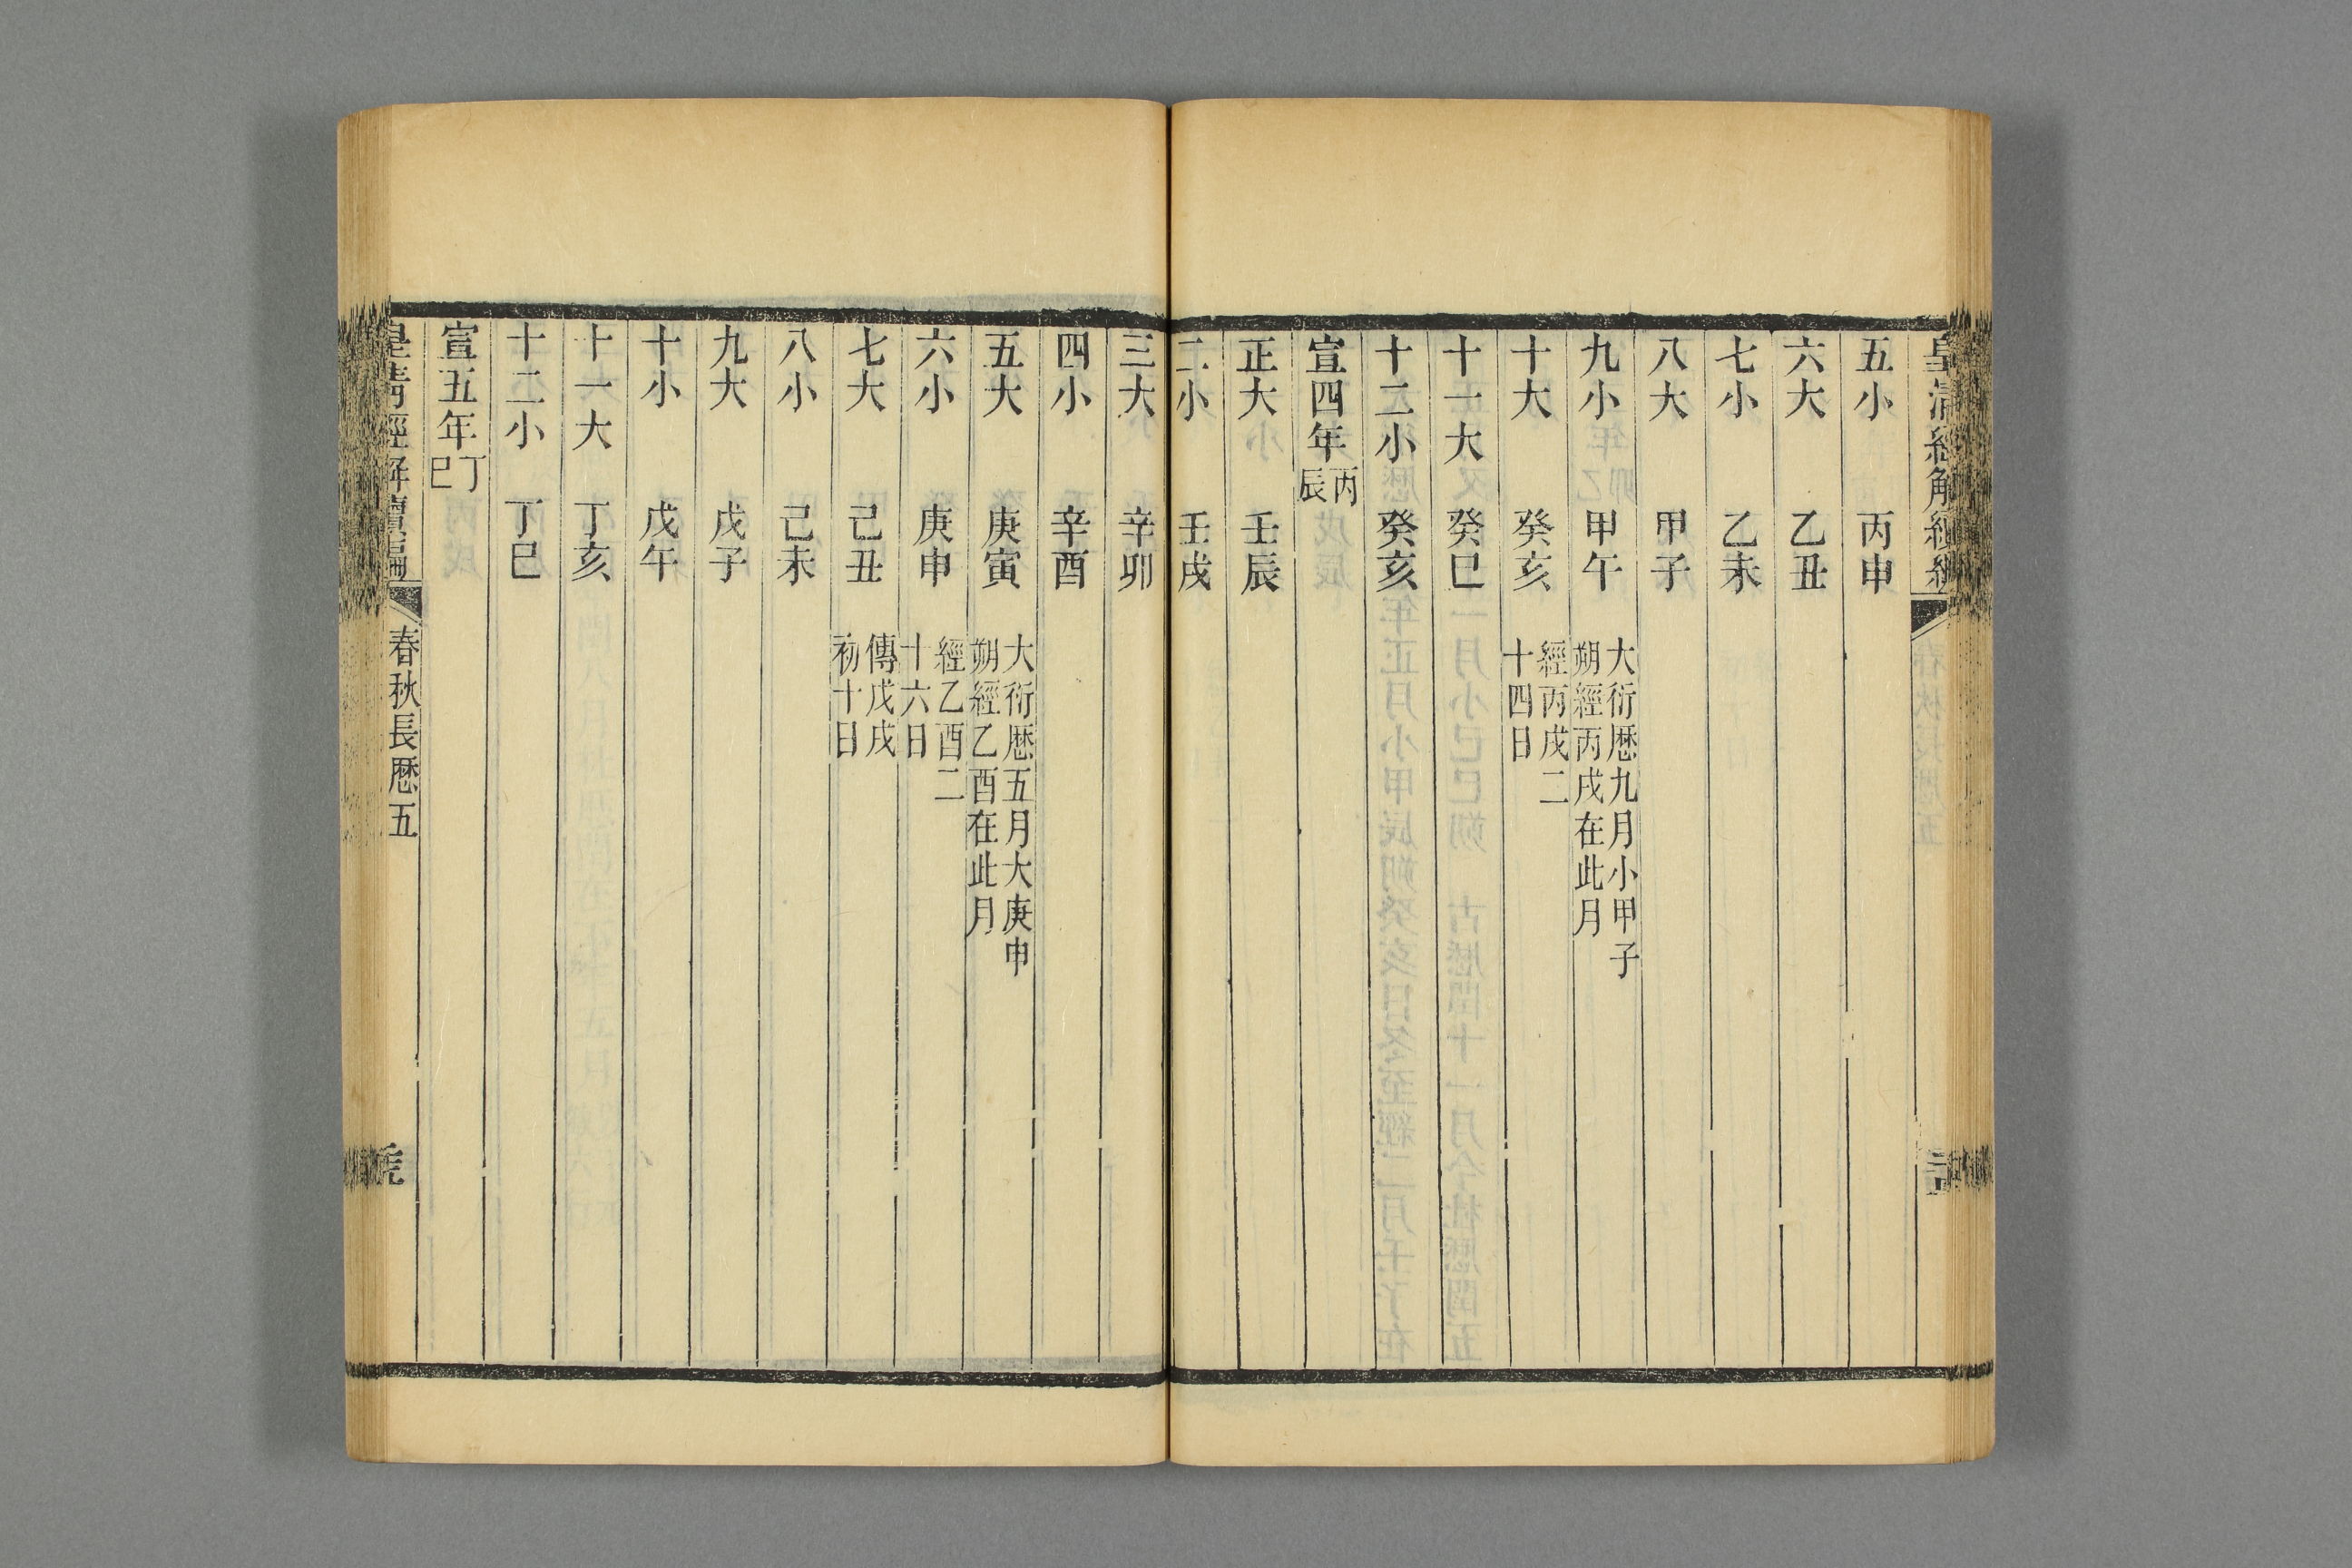 皇清經解續編
五小　丙申
六大　乙丑
七小　乙未
八大　甲子
九小　甲午　大衍厯九月小甲子
朔經丙戌在此月
十大　癸亥　經丙戌二
十四日
十一大　癸巳
十二小　癸亥
宣四年丙辰
正大　壬辰
二小　壬戌
三大　辛卯
四小　辛酉
五大　庚寅　大衍厯五月大庚申
朔經乙酉在此月
六小　庚申　經乙酉二
十六日
七大　己丑　傳戊戌
初十日
八小　己未
九大　戊子
十小　戊午
十一大　丁亥
十二小　丁巳
宣五年丁巳
皇清經解續編　春秋長厯五